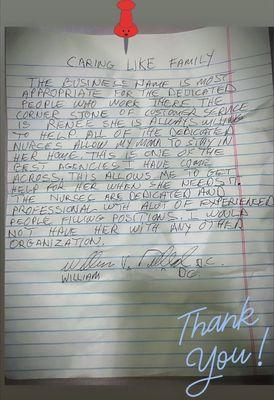 CARING LIKE FAMILY
THE BUSINESS NAME IS MOST
APPROPRIATE FOR THE DEDICATED
PEOPLE WHO WORK THERE THE
CORNER STONE OF CUSTOMER SERVICE
IS RENEE SHE IS ALWAYS WILLING
TO HELP ALL OF THE DEDICATED
NURSES ALLOW MY MOM TO STAY IN
HER HOME. THIS IS ONE OF THE
BEST AGENCIES I HAVE COME
ACROSS THIS ALLOWS ME TO GET
HELP FOR HER WHEN SHE NEEDS IT.
THE NURSES ARE DEDICATED AND
PROFESSIONAL WITH ALOT OF EXPERIENCED
PEOPLE FILLING POSITIONS. I WOULD
NOT HAVE HER WITH ANY OTHER
ORGANIZATION.
William D.C.
WILLIAM D.C.
Thank
you!